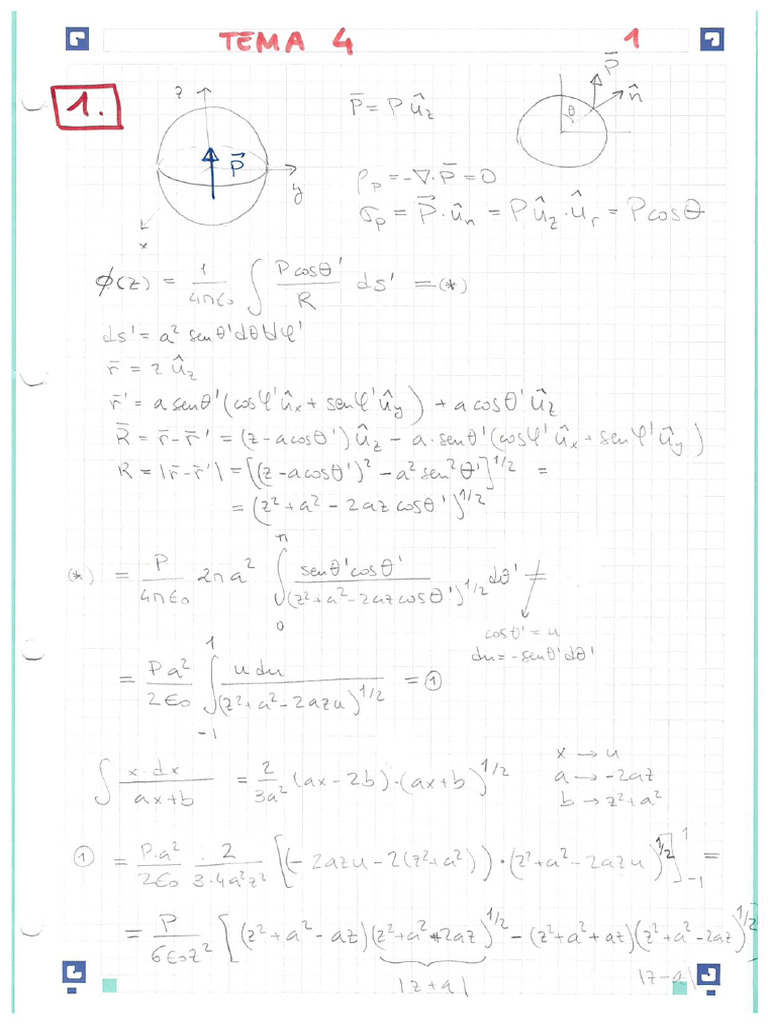 TEMA 4 1
1.
z
P̄
y
x
P̄ = P û_z
θ
P̄
n̂
ρ_p = -∇·P̄ = 0
σ_p = P̄·û_n = P û_z·û_r = P cosθ
φ(z) = 1/(4πε₀) ∫ (P cosθ')/R ds' = (*)
ds' = a² senθ'dθ'dφ'
r̄ = z û_z
r̄' = a senθ'(cosφ'û_x + senφ'û_y) + a cosθ'û_z
R̄ = r̄ - r̄' = (z - a cosθ')û_z - a·senθ'(cosφ'û_x + senφ'û_y)
R = |r̄ - r̄'| = [(z - a cosθ')² - a² sen²θ']^{1/2} =
= (z² + a² - 2az cosθ')^{1/2}
(*) = P/(4πε₀) 2πa² ∫₀^π (senθ'cosθ')/(z² + a² - 2az cosθ')^{1/2} dθ' =
cosθ' = u
du = -senθ'dθ'
= Pa²/(2ε₀) ∫₋₁^1 u du/(z² + a² - 2azu)^{1/2} = ①
∫ x·dx/(ax+b) = 2/(3a²) (ax - 2b)·(ax+b)^{1/2}
x → u
a → -2az
b → z² + a²
① = P·a²/(2ε₀) · 2/(3·4a²z²) [(-2azu - 2(z² + a²))·(z² + a² - 2azu)^{1/2}]₋₁^1 =
= P/(6ε₀z²) [(z² + a² - az)(z² + a² + 2az)^{1/2} - (z² + a² + az)(z² + a² - 2az)^{1/2}
|z + a|
|z - a|